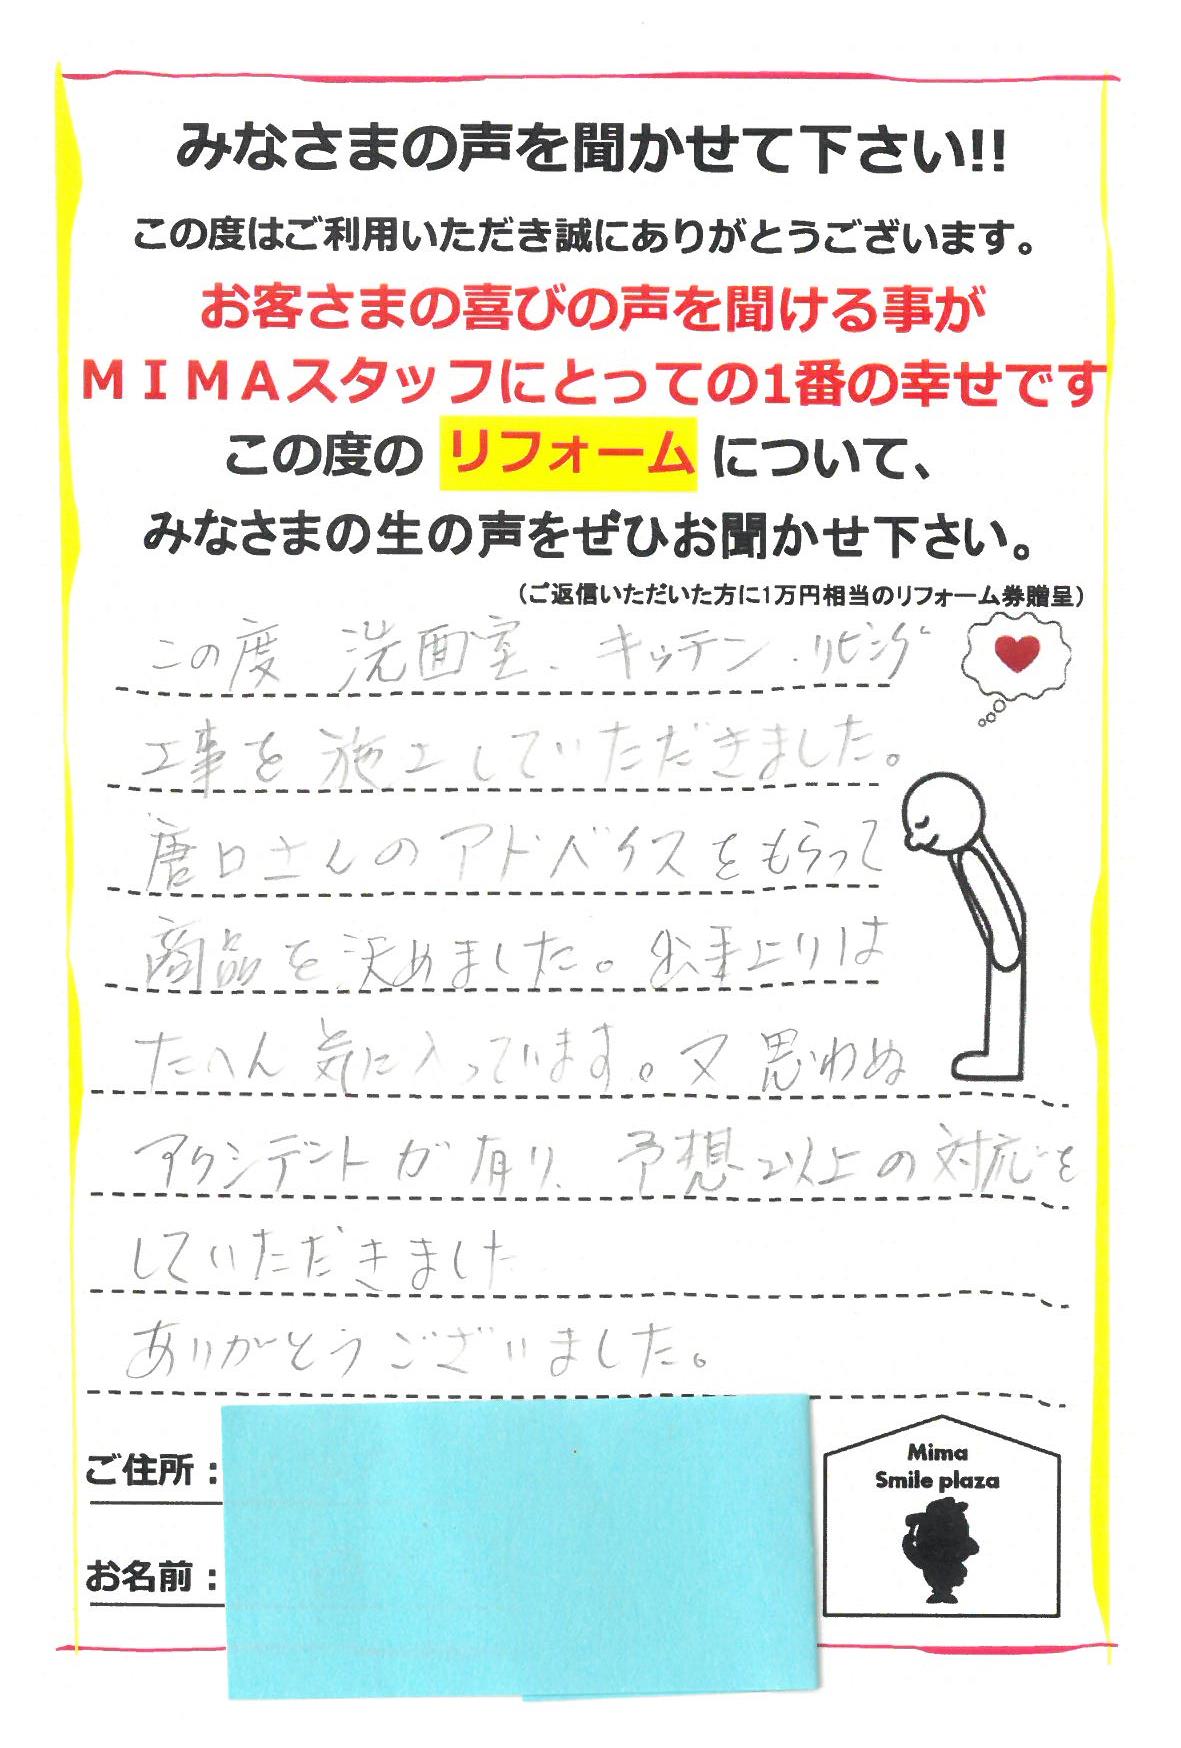 みなさまの声を聞かせて下さい!!
この度はご利用いただき誠にありがとうございます。
お客さまの喜びの声を聞ける事が
ＭＩＭＡスタッフにとっての1番の幸せです
この度の リフォーム について、
みなさまの生の声をぜひお聞かせ下さい。
（ご返信いただいた方に1万円相当のリフォーム券贈呈）
この度 洗面室、キッチン、リビング
工事を施工していただきました。
唐口さんのアドバイスをもらって
商品を決めました。出来上りは
たいへん気に入っています。又思わぬ
アクシデントが有り、予想以上の対応を
していただきました
ありがとうございました。
ご住所：
お名前：
Mima
Smile plaza